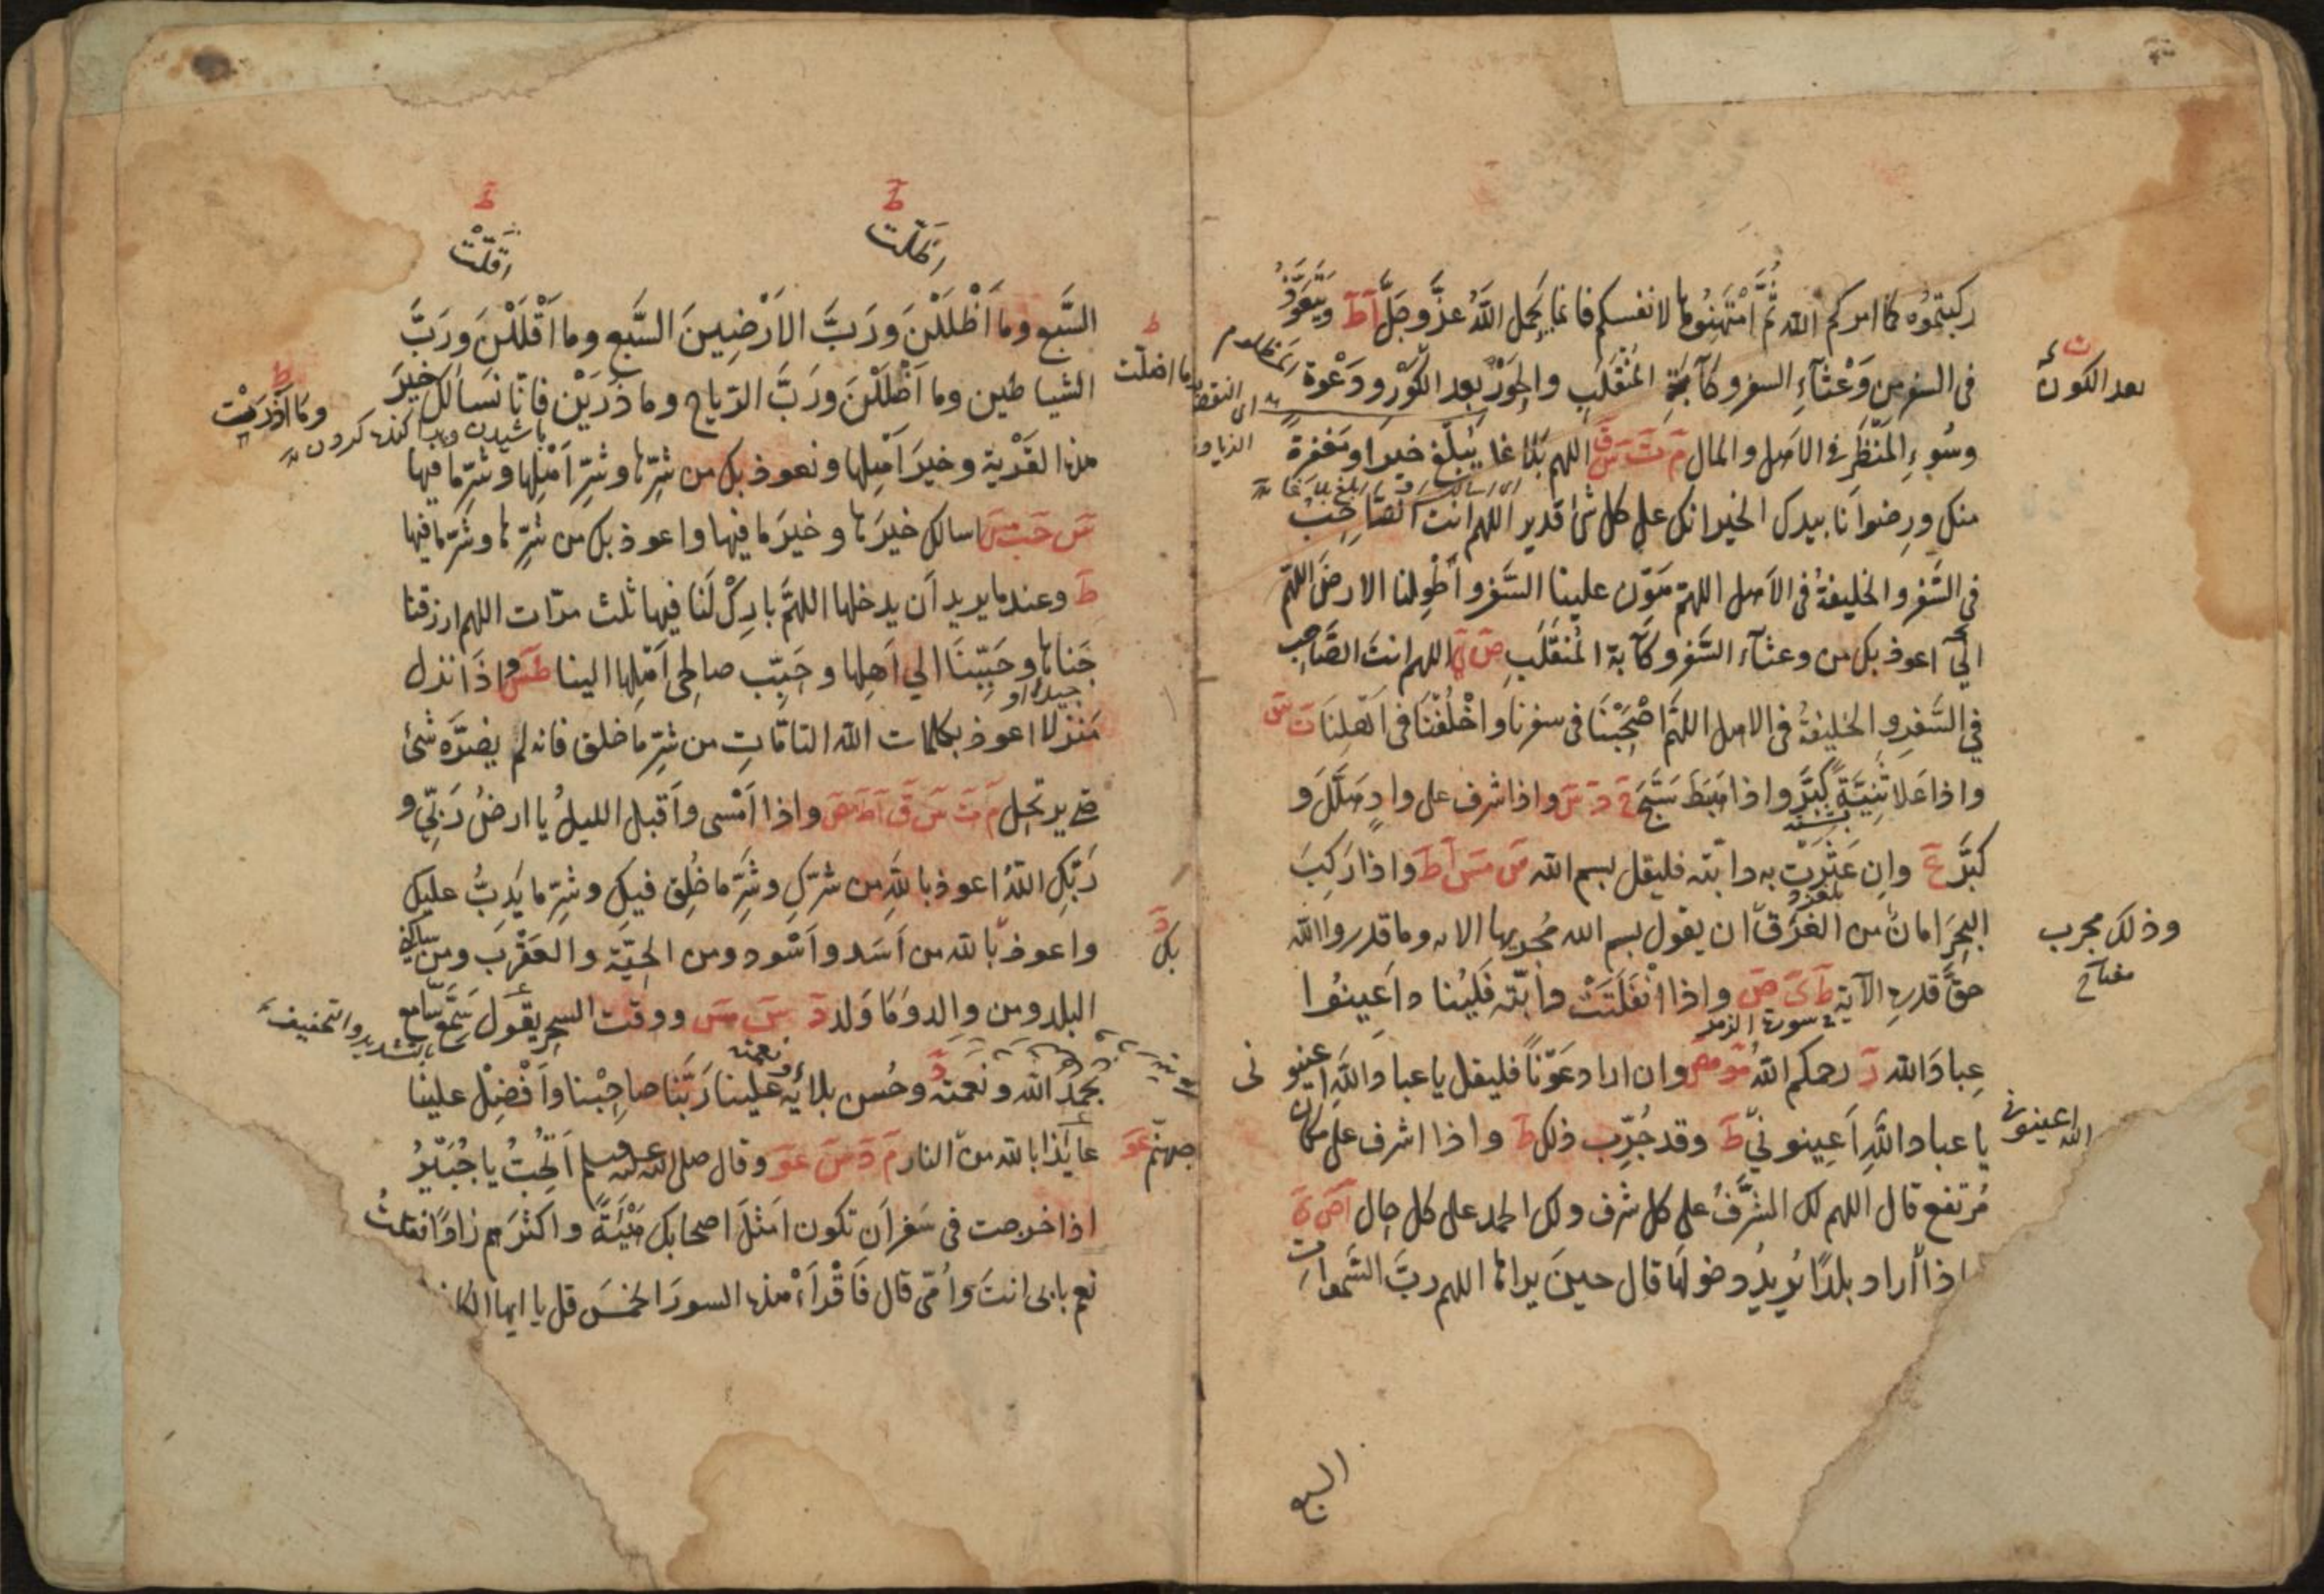 ركبتموه كما امركم الله ثم امتهنوها لانفسكم فانما يحمل الله عز وجل آ ط ويتعوذ
فى السفر من وعثآء السفر وكآبة المنقلب والحور بعد الكور ودعوة المظلوم
بعد الكون
وسوء المنظر فى الاهل والمال م ت س ق اللهم بلاغا يبلغ خيرا ومغفرة
منك ورضوانا بيدك الخير انك على كل شئ قدير اللهم انت الصاحب
فى السفر والخليفة فى الاهل اللهم هون علينا السفر واطو لنا الارض اللهم
انى اعوذ بك من وعثآء السفر وكآبة المنقلب ص ى اللهم انت الصاحب
في السفر والخليفة فى الاهل اللهم اصحبنا فى سفرنا واخلفنا فى اهلنا ت س
واذا علا ثنية كبر واذا هبط سبح خ د س واذا اشرف على واد هلل و
كبر ع وان عثرت به دابته فليقل بسم الله س مس آ ط واذا ركب
البحر امان من الغرق ان يقول بسم الله مجريها الايه وما قدروا الله
وذلك مجرب
مفتاح
حق قدره الآية ط ى ص واذا انفلتت دابته فلينا د اعينوا
فى سورة الزمر
عباد الله ر رحمكم الله مو مص وان اراد عونا فليقل يا عباد الله اعينو نى
يا عباد الله اعينو نى ط وقد جرب ذلك ط واذا اشرف على مكان
الله اعينونى
مرتفع قال اللهم لك الشرف على كل شرف ولك الحمد على كل حال آ ص ى
اذا اراد بلدا يريد دخولها قال حين يراها اللهم رب السموات
السبع
اظلت
اقلت
السبع وما اظللن ورب الارضين السبع وما اقللن ورب
الشياطين وما اضللن ورب الرياح وما ذرين فانا نسألك خير
ما اضلت
وما اذريت
هذه القرية وخير اهلها ونعوذ بك من شرها وشر اهلها وشر ما فيها
س حب مس اسالك خيرها وخير ما فيها واعوذ بك من شرها وشر ما فيها
ط وعندما يريد ان يدخلها اللهم بارك لنا فيها ثلث مرات اللهم ارزقنا
جناها وحببنا الى اهلها وحبب صالحى اهلها الينا طس واذا نزل
منزلا اعوذ بكلمات الله التامات من شر ما خلق فانه لم يضره شئ
حتى يرتحل م ت س ق آ ط مص واذا امسى واقبل الليل يا ارض ربى و
ربك الله اعوذ بالله من شرك وشر ما خلق فيك وشر ما يدب عليك
واعوذ بالله من اسد واسود ومن الحية والعقرب ومن ساكنى
بك
البلد ومن والد وما ولد د س مس ووقت السحر يقول سمع سامع
بالتشديد والتخفيف
بحمد الله ونعمته وحسن بلائه علينا ربنا صاحبنا وافضل علينا
عائذا بالله من النار م د س عو وقال صلى الله عليه وسلم اتحب يا جبير
جهنم عو
اذا خرجت فى سفر ان تكون امثل اصحابك هيئة واكثرهم زادا فقلت
نعم بابى انت وامى قال فاقرأ هذه السور الخمس قل يا ايها الكا